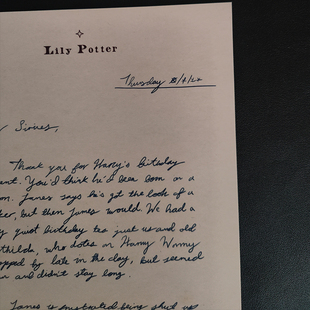 Lily Potter
Thursday
Sirius,
Thank you for Harry's birthday
You'd think he'd been born on a
James says he's got the look of a
but then James would. We had a
quiet birthday tea just us and old
who dotes on Harry Winny
by late in the day, but seemed
and didn't stay long.
James is frustrated being shut up